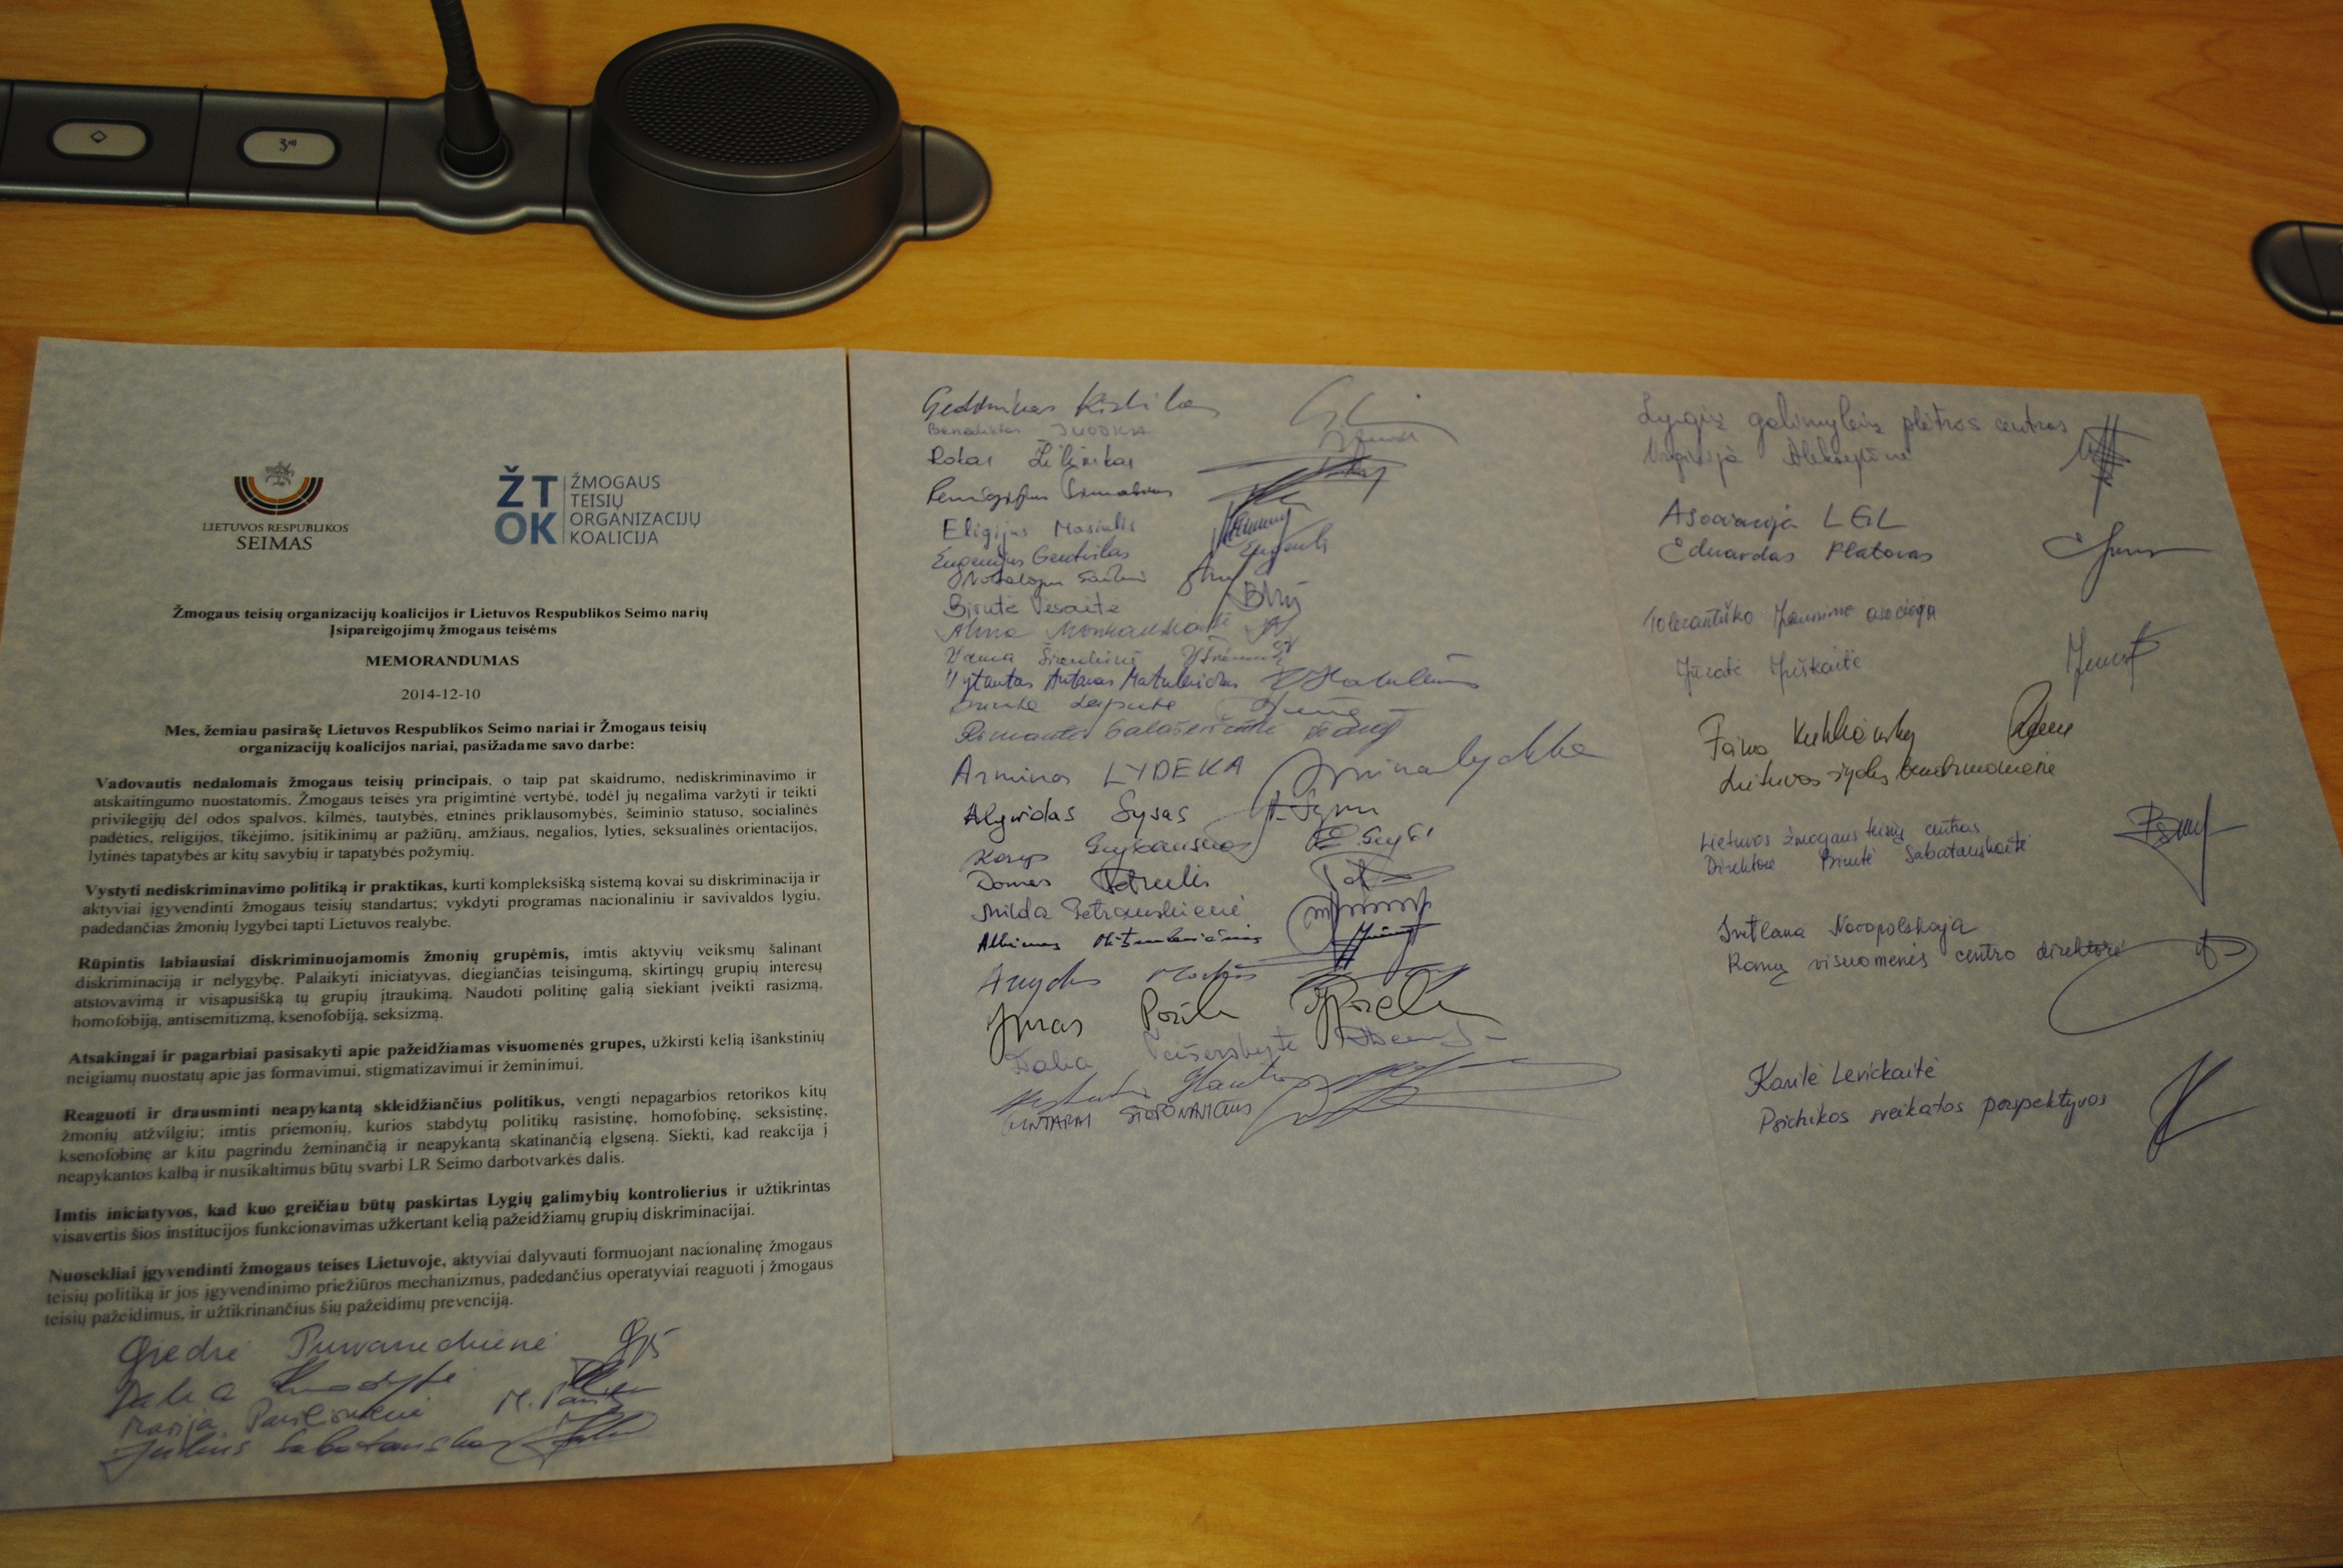 LIETUVOS RESPUBLIKOS
SEIMAS
ŽT
OK
ŽMOGAUS
TEISIŲ
ORGANIZACIJŲ
KOALICIJA
Žmogaus teisių organizacijų koalicijos ir Lietuvos Respublikos Seimo narių
Įsipareigojimų žmogaus teisėms
MEMORANDUMAS
2014-12-10
Mes, žemiau pasirašę Lietuvos Respublikos Seimo nariai ir Žmogaus teisių
organizacijų koalicijos nariai, pasižadame savo darbe:
Vadovautis nedalomais žmogaus teisių principais, o taip pat skaidrumo, nediskriminavimo ir
atskaitingumo nuostatomis. Žmogaus teisės yra prigimtinė vertybė, todėl jų negalima varžyti ir teikti
privilegijų dėl odos spalvos, kilmės, tautybės, etninės priklausomybės, šeiminio statuso, socialinės
padėties, religijos, tikėjimo, įsitikinimų ar pažiūrų, amžiaus, negalios, lyties, seksualinės orientacijos,
lytinės tapatybės ar kitų savybių ir tapatybės požymių.
Vystyti nediskriminavimo politiką ir praktikas, kurti kompleksišką sistemą kovai su diskriminacija ir
aktyviai įgyvendinti žmogaus teisių standartus; vykdyti programas nacionaliniu ir savivaldos lygiu,
padedančias žmonių lygybei tapti Lietuvos realybe.
Rūpintis labiausiai diskriminuojamomis žmonių grupėmis, imtis aktyvių veiksmų šalinant
diskriminaciją ir nelygybę. Palaikyti iniciatyvas, diegiančias teisingumą, skirtingų grupių interesų
atstovavimą ir visapusišką tų grupių įtraukimą. Naudoti politinę galią siekiant įveikti rasizmą,
homofobiją, antisemitizmą, ksenofobiją, seksizmą.
Atsakingai ir pagarbiai pasisakyti apie pažeidžiamas visuomenės grupes, užkirsti kelią išankstinių
neigiamų nuostatų apie jas formavimui, stigmatizavimui ir žeminimui.
Reaguoti ir drausminti neapykantą skleidžiančius politikus, vengti nepagarbios retorikos kitų
žmonių atžvilgiu; imtis priemonių, kurios stabdytų politikų rasistinę, homofobinę, seksistinę,
ksenofobinę ar kitu pagrindu žeminančią ir neapykantą skatinančią elgseną. Siekti, kad reakcija į
neapykantos kalbą ir nusikaltimus būtų svarbi LR Seimo darbotvarkės dalis.
Imtis iniciatyvos, kad kuo greičiau būtų paskirtas Lygių galimybių kontrolierius ir užtikrintas
visavertis šios institucijos funkcionavimas užkertant kelią pažeidžiamų grupių diskriminacijai.
Nuosekliai įgyvendinti žmogaus teises Lietuvoje, aktyviai dalyvauti formuojant nacionalinę žmogaus
teisių politiką ir jos įgyvendinimo priežiūros mechanizmus, padedančius operatyviai reaguoti į žmogaus
teisių pažeidimus, ir užtikrinančius šių pažeidimų prevenciją.
Giedrė Purvaneckienė
Dalia Kuodytė
Marija Pavilionienė
Julius Sabatauskas
Benediktas JUODKA
Rokas Žilinskas
Remigijus
Eligijus Masiulis
Eugenijus Gentvilas
Birutė Vėsaitė
Vytautas Antanas Matulevičius
Arminas LYDEKA
Algirdas Sysas
Domas Petrulis
Milda Petrauskienė
Juras Požela
Dalia
GINTARAS STEPONAVIČIUS
Lygių galimybių plėtros centras
Margarita
Asociacija LGL
Eduardas Platovas
Tolerantiško Jaunimo asociacija
Jūratė Juškaitė
Faina Kukliansky
Lietuvos žydų bendruomenė
Lietuvos žmogaus teisių centras
Direktorė Birutė Sabatauskaitė
Svetlana Novopolskaja
Romų visuomenės centro direktorė
Karilė Levickaitė
Psichikos sveikatos perspektyvos